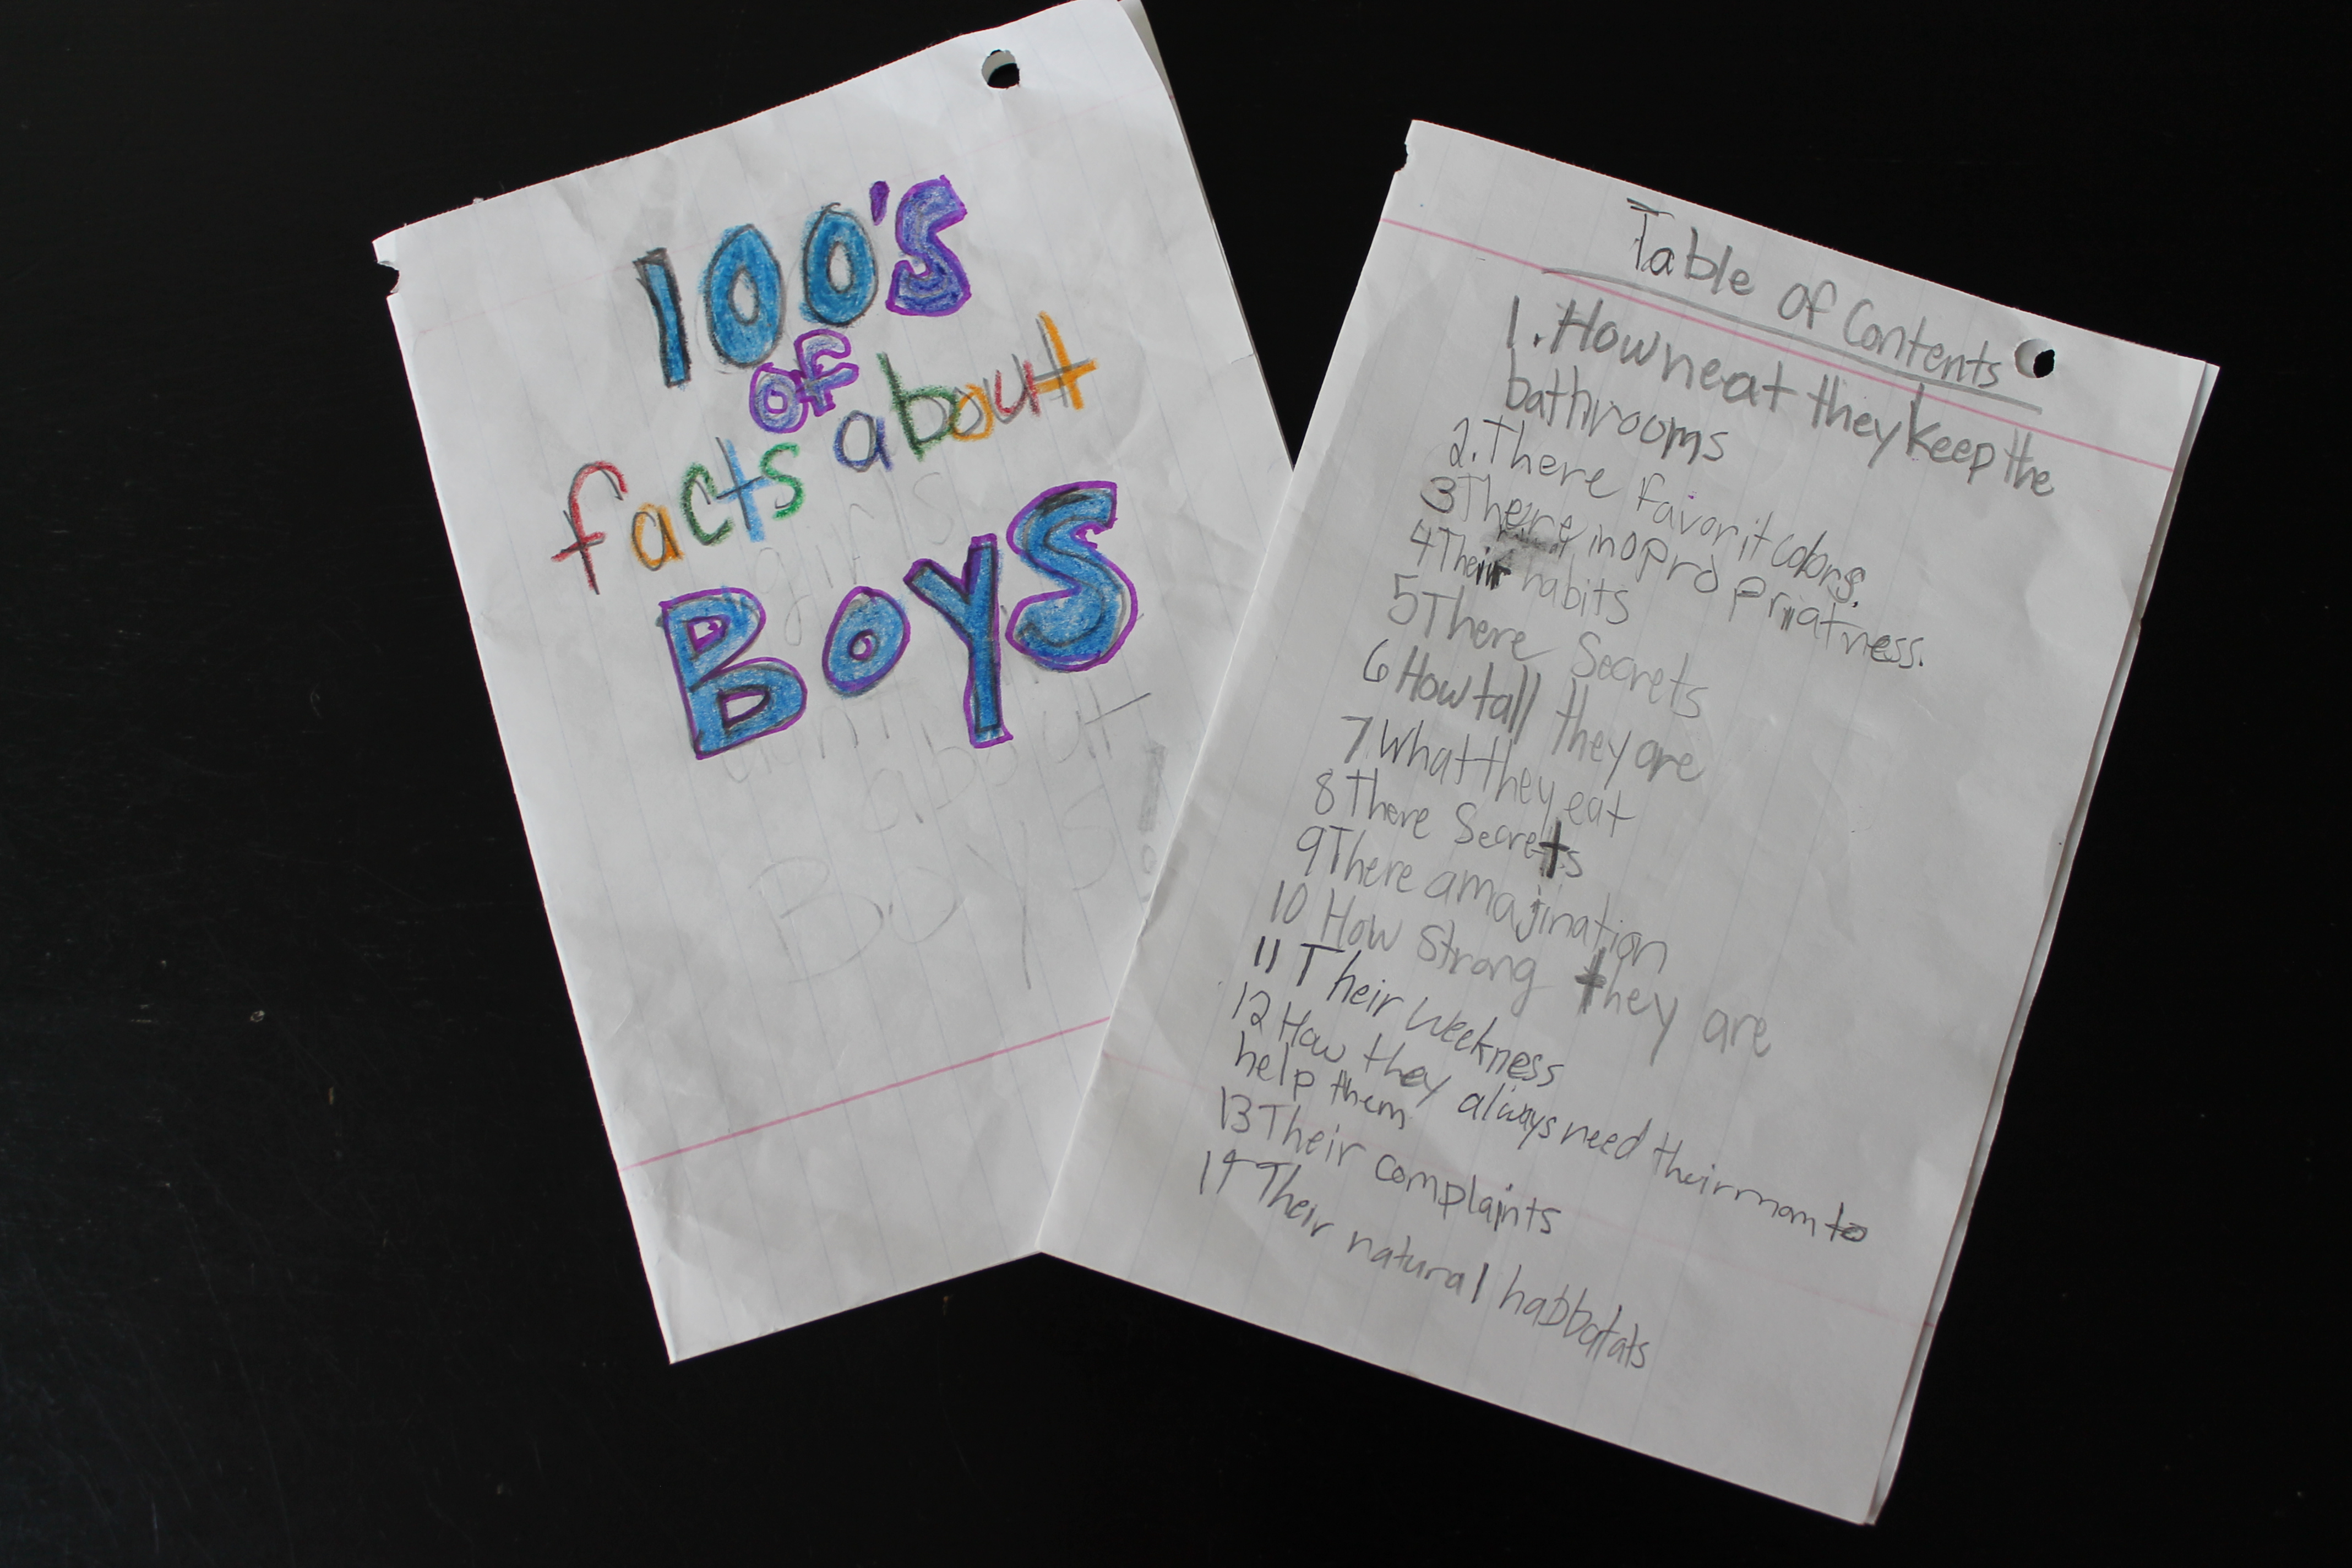 100's
of
facts about
BOYS
girls
about
Boys
Table of Contents
1. How neat they keep the
bathrooms
2. There favorit colors.
3 There inopropriatness.
4 Their habits
5 There Secrets
6 How tall they are
7 What they eat
8 There Secrets
9 There amajination
10 How Strong they are
11 Their weekness
12 How they always need their mom to
help them
13 Their complaints
14 Their natural habbatats